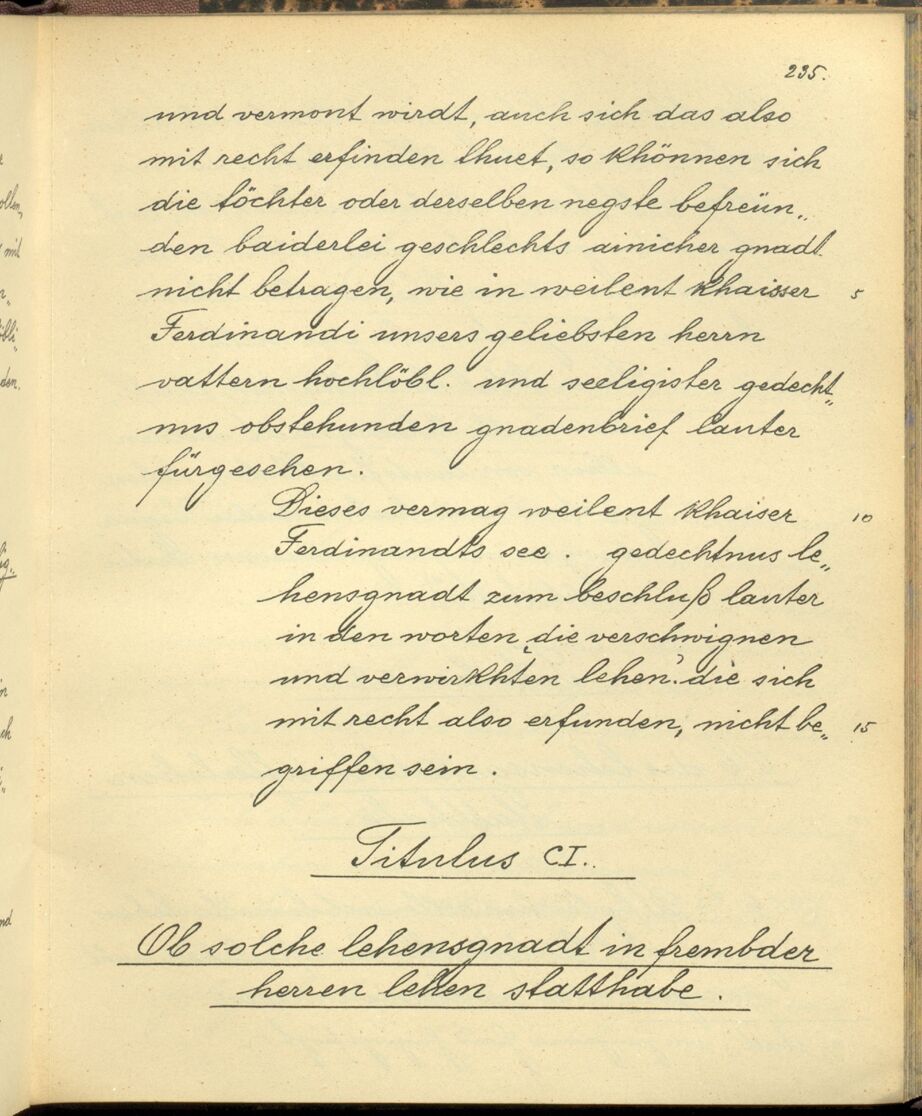 235.
und vermont wirdt, auch sich das also
mit recht erfinden thuet, so khönnen sich
die töchter oder derselben negste befreün„
den baiderlei geschlechts ainicher gnadt
nicht betragen, wie in weilent khaisser 5
Ferdinandi unsers geliebsten herrn
vattern hochlöbl. und seeligister gedecht„
nus obstehunden gnadenbrief lauter
fürgesehen.
Dieses vermag weilent khaiser 10
Ferdinandts see. gedechtnus le„
hensgnadt zum beschluß lauter
in den worten ‚die verschwignen
und verwirkhten lehen'. die sich
mit recht also erfunden, nicht be„ 15
griffen sein.
Titulus CI.
Ob solche lehensgnadt in frembder
herren lehen statthabe.